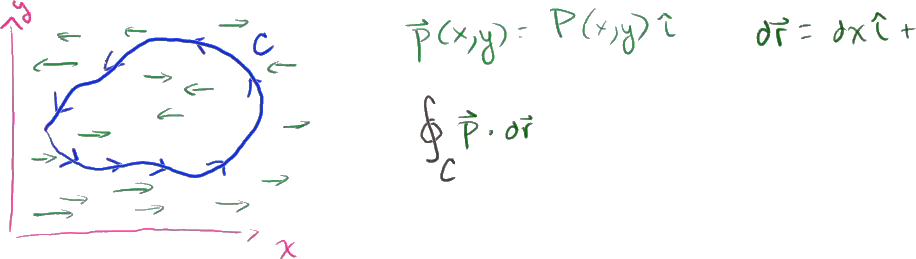 y
C
x
p⃗(x,y) = P(x,y) î
dr⃗ = dx î +
∮_C p⃗ · dr⃗